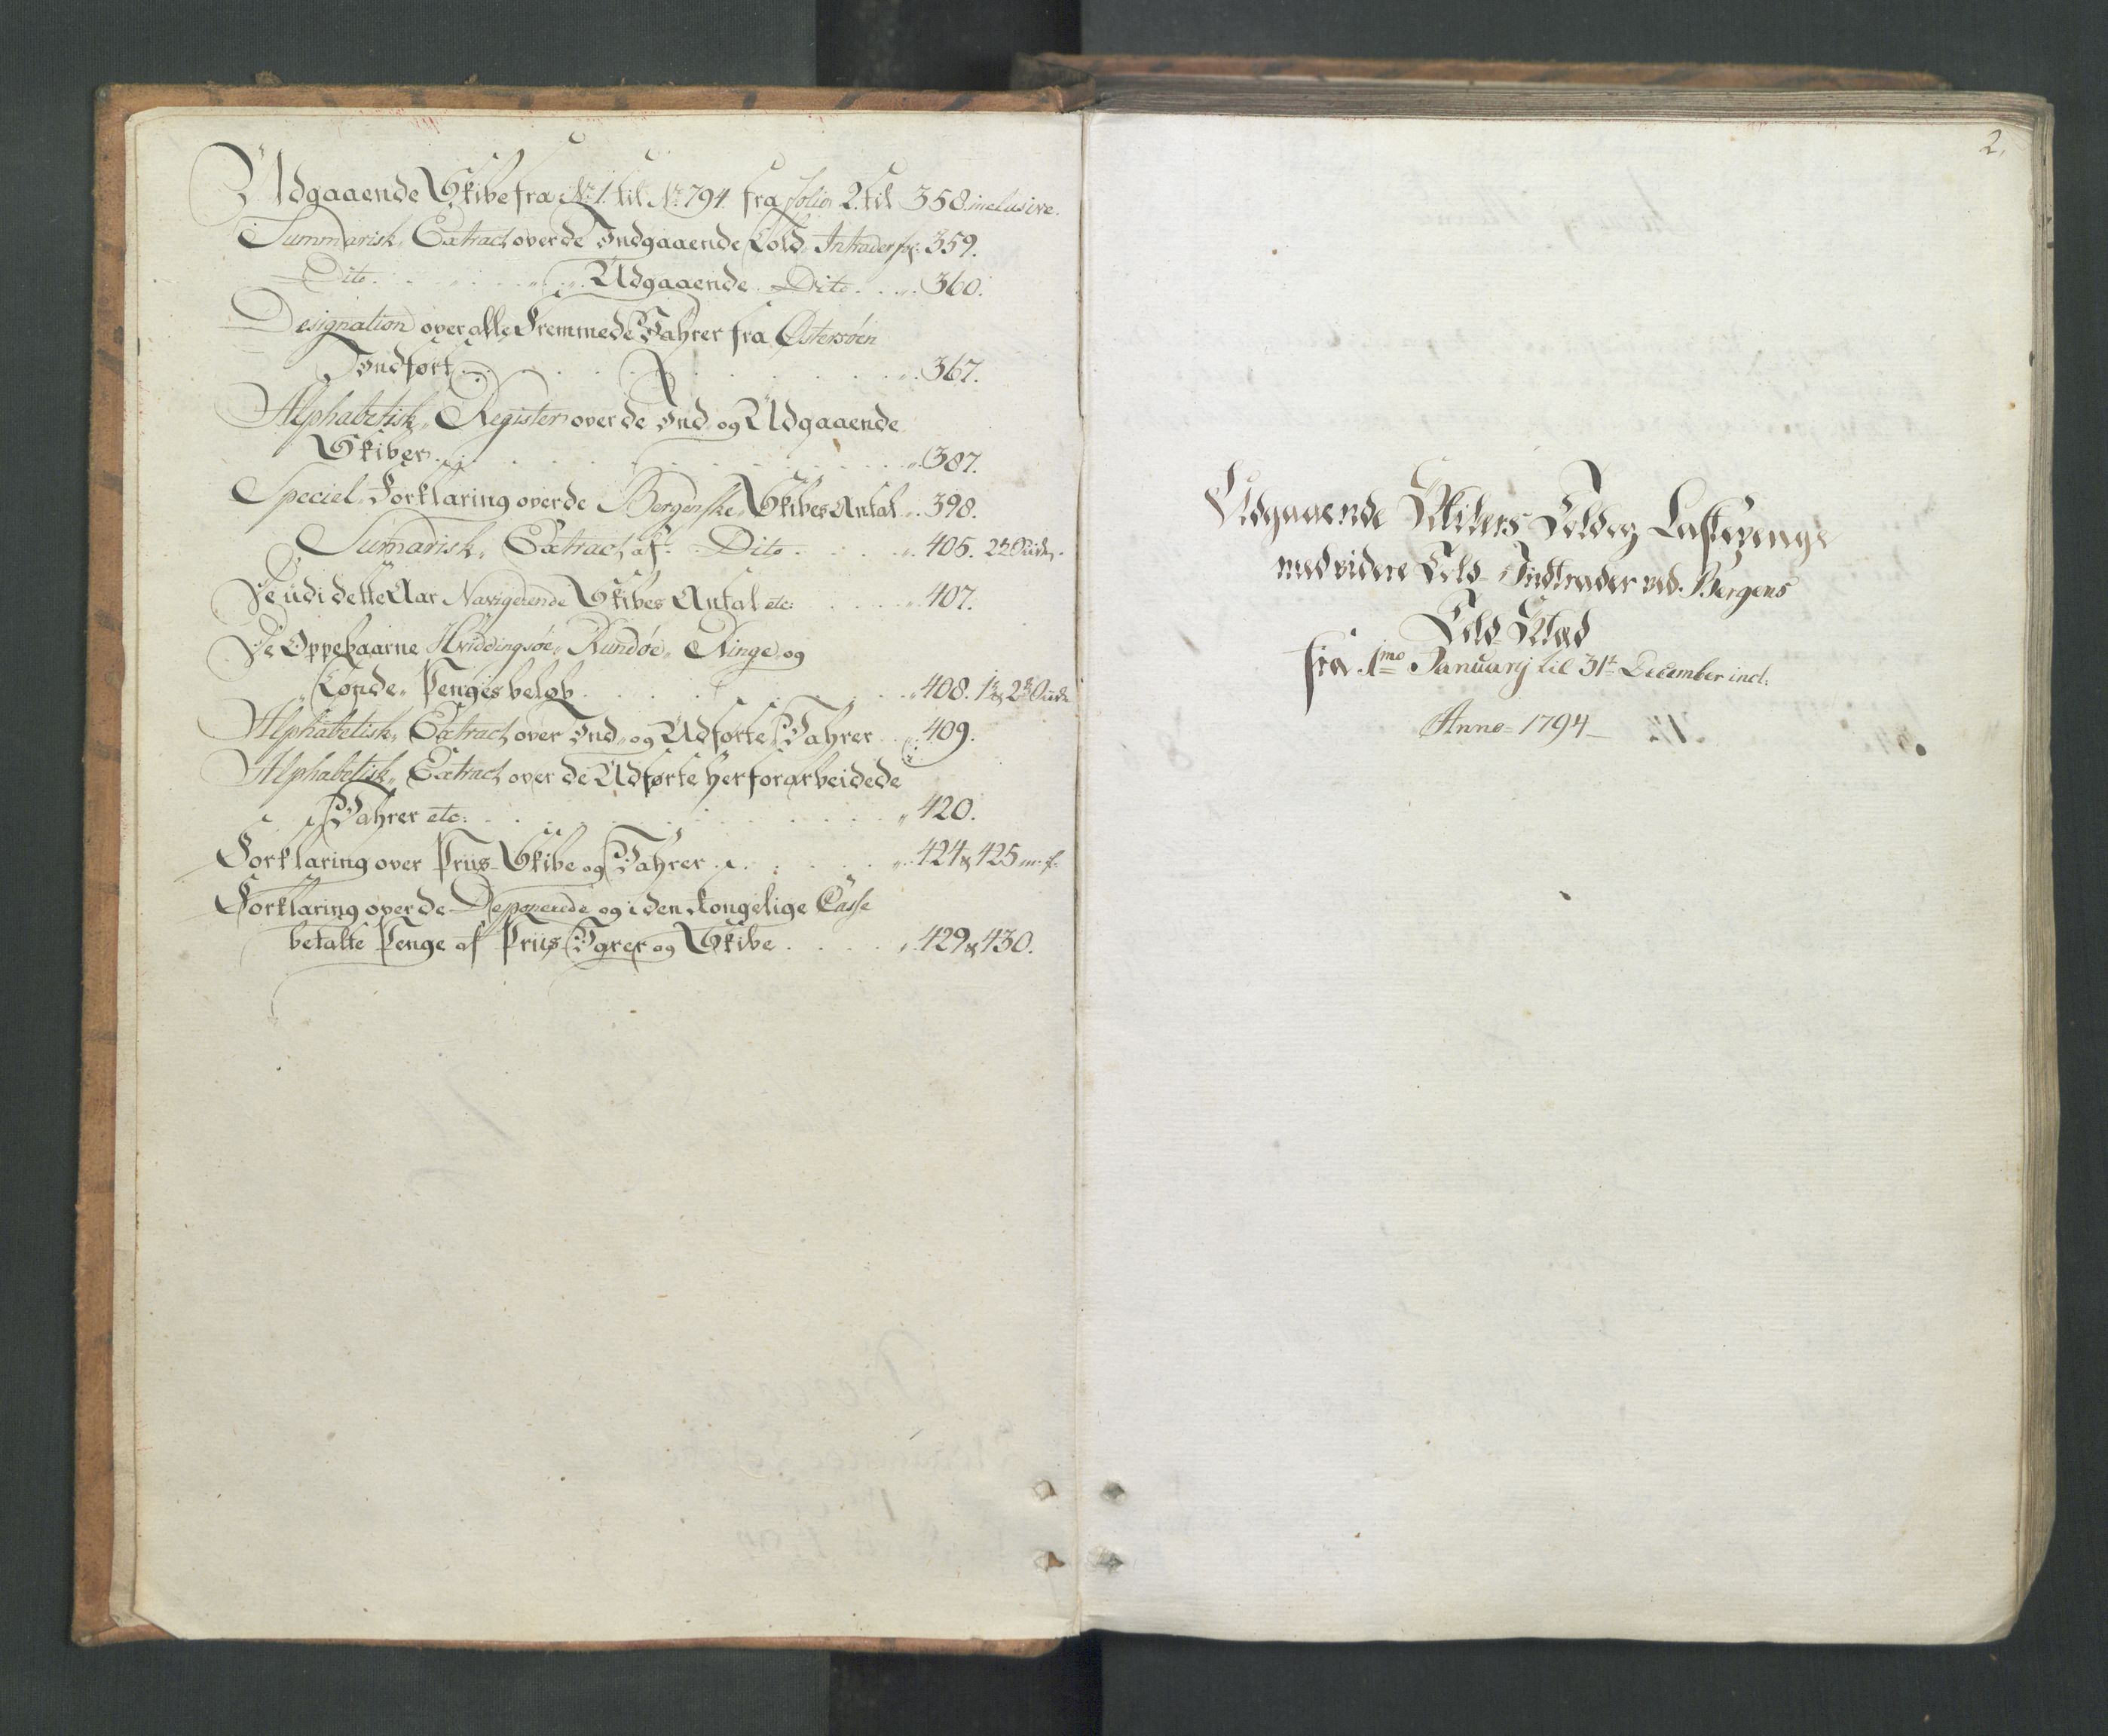 Udgaaende Skibe fra No. 1. til No. 794. fra folio 2. til 358. inclusive.
Summarisk Extract over de Indgaaende Told Intrader fol: 359.
Dito . . . . . Udgaaende Dito . . . 360.
Designation over alle Fremmede Vahrer fra Østersøen
Indført . . . . . . . . 367.
Alphabetisk Register over de Ind og Udgaaende
Skiber . . . . . . . . 387.
Speciel Forklaring over de Bergenske Skibes Antal . 398.
Sum̄arisk Extract af Dito . . . . 405.
De udi dette Aar Navigerende Skibes Antal etc: . . . . 407.
De Oppebaarne Hviddingsøe, Rundøe, Ringe og
Tønde Penges beløb . . . . . . 408.
Alphabetisk Extract over Ind og Udførte Vahrer . . 409.
Alphabetisk Extract over de Udførte her forarbeidede
Vahrer etc: . . . . . . . . 420.
Forklaring over Priis Skibe og Vahrer . . . . . 424 & 425
Forklaring over de Deponerede og i den Kongelige Casse
betalte Penge af Priis Varer og Skibe . . . . 429 & 430.
2.
Udgaaende Skibers Told og Lastepenge
med videre Told Indtrader ved Bergens
Told Stæd
fra 1mo Januarij til 31te December incl:
Anno 1794